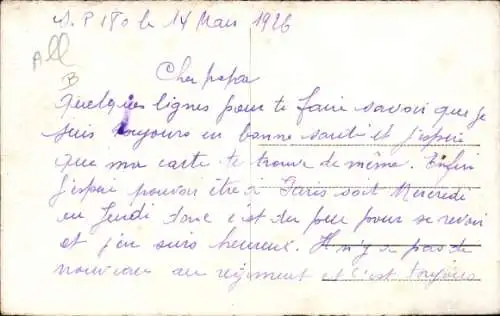 S. P 180 le 14 Mars 1926
All
B
Cher papa
Quelques lignes pour te faire savoir que je
suis toujours en bonne santé et j'espère
que ma carte te trouve de même. Enfin
J'espère pouvoir être à Paris soit Mercredi
ou Jeudi donc c'est du peu pour se revoir
et j'en suis heureux. Il n'y a pas de
nouveau au régiment et c'est toujours